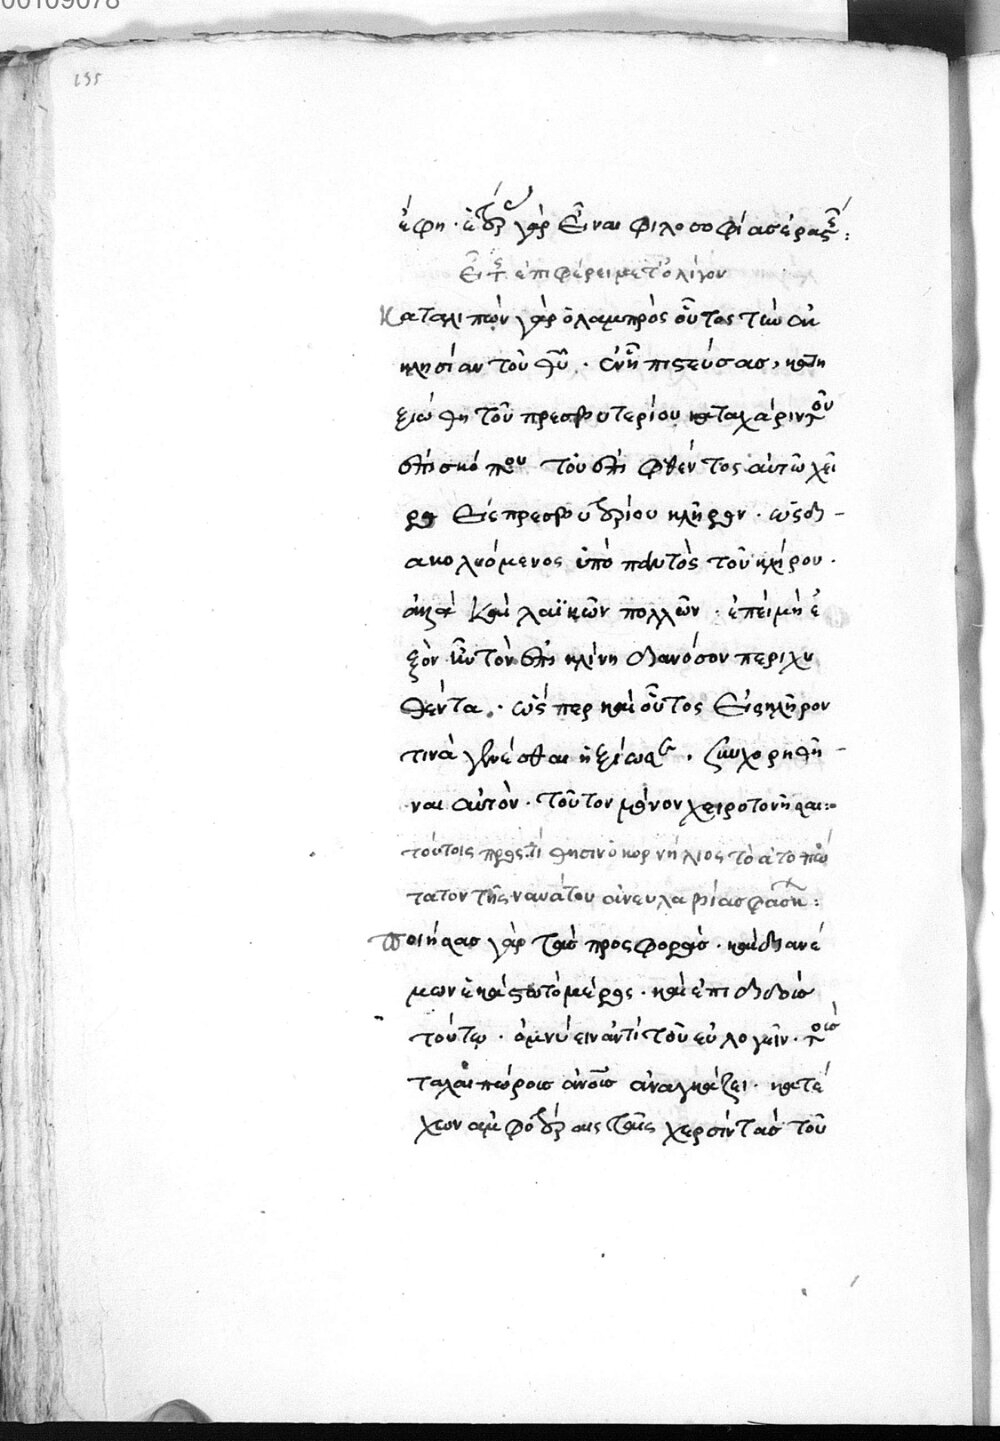 00109078
135
ἔφη · ἑτέρας γὰρ εἶναι φιλοσοφίας ἐραστής :
Εἶτ ἐπιφέρει μετ' ὀλίγον
Καταλιπὼν γὰρ ὁ λαμπρὸς οὗτος τὴν ἐκ
κλησίαν τοῦ θῦ · ἐν ᾗ πιστεύσας, κατη
ξιώθη τοῦ πρεσβυτερίου κατὰ χάριν τοῦ
ἐπισκόπου τοῦ ἐπιθέντος αὐτῷ χεῖ
ρα εἰς πρεσβυτερίου κλῆρον · ὡς δι
ακολυόμενος ὑπὸ παντὸς τοῦ κλήρου ·
ἀλλὰ καὶ λαϊκῶν πολλῶν · ἐπεὶ μὴ ἐ
ξὸν ἦν τὸν ἐπὶ κλίνη διανόσον περιχυ
θέντα · ὥς περ καὶ οὗτος εἰς κλῆρον
τινὰ γενέσθαι ἠξίωσε · συγχορηθῆ
ναι αὐτὸν · τοῦτον μόνον χειροτονῆσαι :
τούτοις προστίθησιν ὁ κορνήλιος τὸ ἀτοπώ
τατον τῆς ναυάτου ἀνευλαβίας φάσκων :
Ποιήσας γὰρ τὰς προσφορὰς · καὶ διανέ
μων ἑκάστω τὸ μέρος · καὶ ἐπιδιδοὺς
τούτω · ὀμνύειν ἀντὶ τοῦ εὐλογεῖν · τοὺς
ταλαιπώρους ἀνους ἀναγκάζει · κατέ
χων ἀμφοτέραις ταῖς χερσὶν τὰς τοῦ